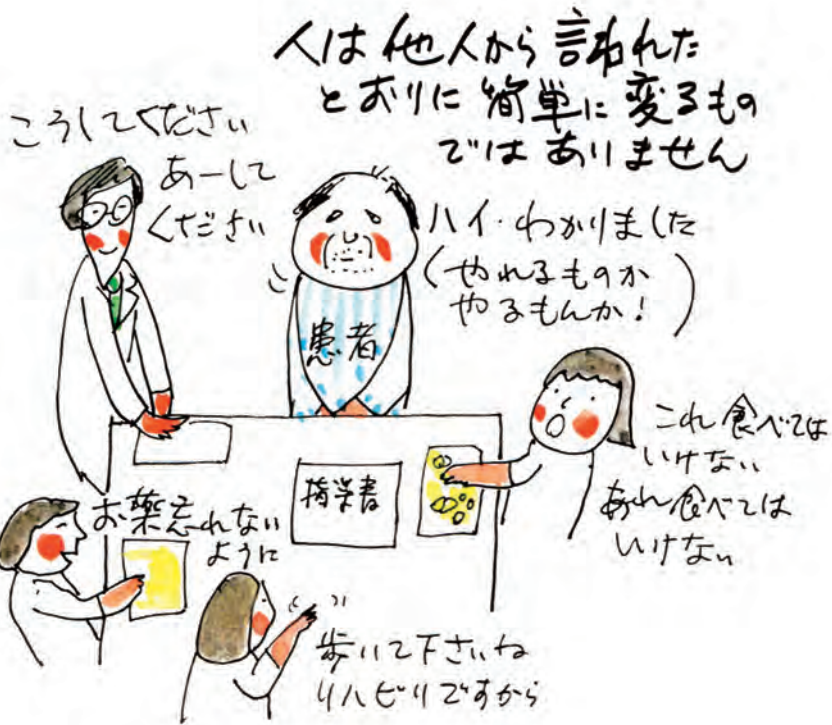 人は他人から言われた
とおりに簡単に変るもの
ではありません
こうしてください
あーして
ください
ハイ・わかりました
(やれるものか
やるもんか!)
患者
これ食べては
いけない
あれ食べては
いけない
指学書
お薬忘れない
ように
歩いて下さいね
リハビリですから